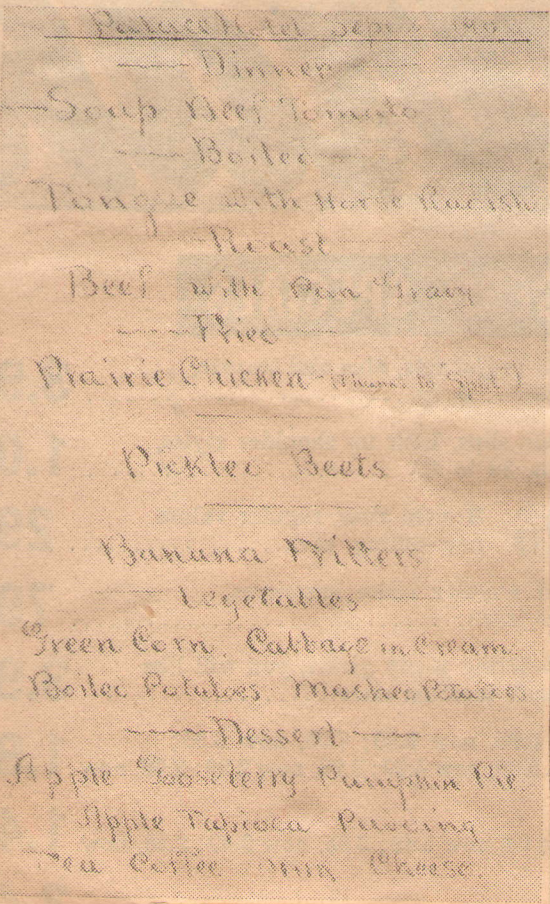 Palace Hotel Sept
Dinner
Soup Beef Tomato
Boiled
Tongue with Horse Radish
Roast
Beef with Pan Gravy
Fried
Prairie Chicken (Thanks to "Spot")
Pickled Beets
Banana Fritters
Vegetables
Green Corn. Cabbage in Cream.
Boiled Potatoes. Mashed Potatoes
Dessert
Apple Gooseberry Pumpkin Pie.
Apple Tapioca Pudding
Tea Coffee Milk Cheese.